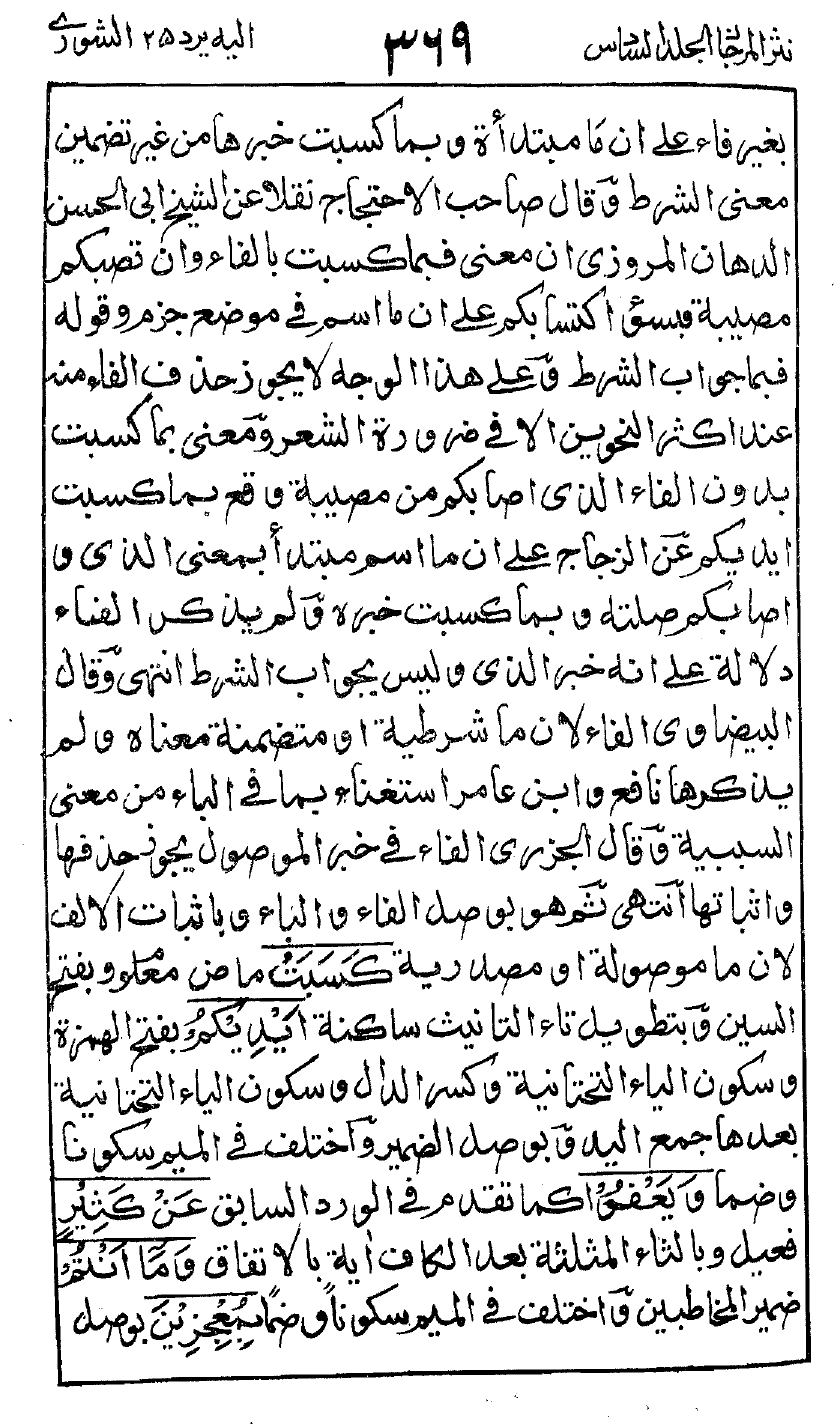 نثر المرجان المجلد السادس ٣٦٩ اليه يرد ٢٥ الشورى
بغير فاء على ان ما مبتدأة و بما كسبت خبرها من غير تضمين
معنى الشرط و قال صاحب الاحتجاج نقلا عن الشيخ ابى الحسن
الدهان المروزى ان معنى فبما كسبت بالفاء وان تصبكم
مصيبة فبسوء اكتسابكم على ان ما اسم فى موضع جزم وقوله
فبما جواب الشرط و على هذا الوجه لا يجوز حذف الفاء منه
عند اكثر النحويين الا فى ضرورة الشعر و معنى بما كسبت
بدون الفاء الذى اصابكم من مصيبة وقع بما كسبت
ايديكم عن الزجاج على ان ما اسم مبتدأ بمعنى الذى و
اصابكم صلته و بما كسبت خبره و لم يذكر الفاء
دلالة على انه خبر الذى و ليس بجواب الشرط انتهى و قال
البيضاوى الفاء لان ما شرطية او متضمنة معناه و لم
يذكرها نافع و ابن عامر استغناء بما فى الباء من معنى
السببية و قال الجزرى الفاء فى خبر الموصول يجوز حذفها
و اثباتها انتهى ثم هو بوصل الفاء و الباء و باثبات الالف
لان ما موصولة او مصدرية كَسَبَتْ ماض معلوم و بفتح
السين و بتطويل تاء التانيث ساكنة اَيْدِيْكُمْ بفتح الهمزة
و سكون الياء التحتانية و كسر الدال و سكون الياء التحتانية
بعدها جمع اليد و بوصل الضمير و اختلف فى الميم سكونا
و ضما وَ يَعْفُوْا كما تقدم فى الورد السابق عَنْ كَثِيْرٍ
فعيل و بالثاء المثلثة بعد الكاف اٰية بالاتفاق وَمَا اَنْتُمْ
ضمير المخاطبين و اختلف فى الميم سكوناً و ضماً بِمُعْجِزِيْنَ بوصل